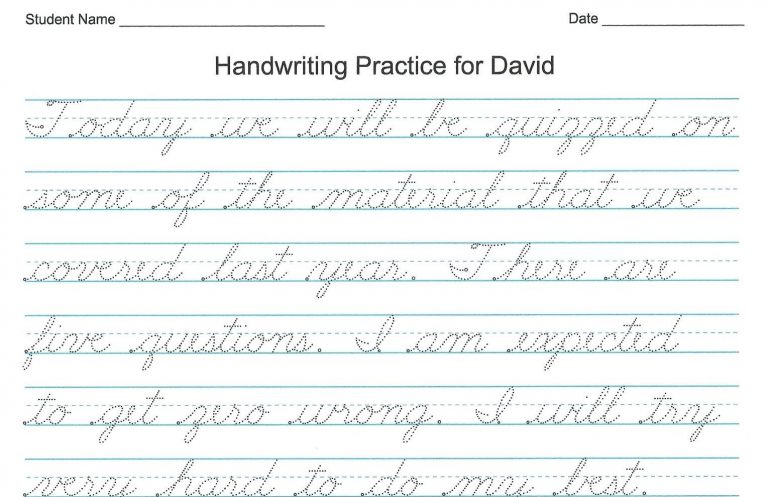 Student Name ____________________ Date ____________________
Handwriting Practice for David
Today we will be quizzed on
some of the material that we
covered last year. There are
five questions. I am expected
to get zero wrong. I will try
very hard to do my best.